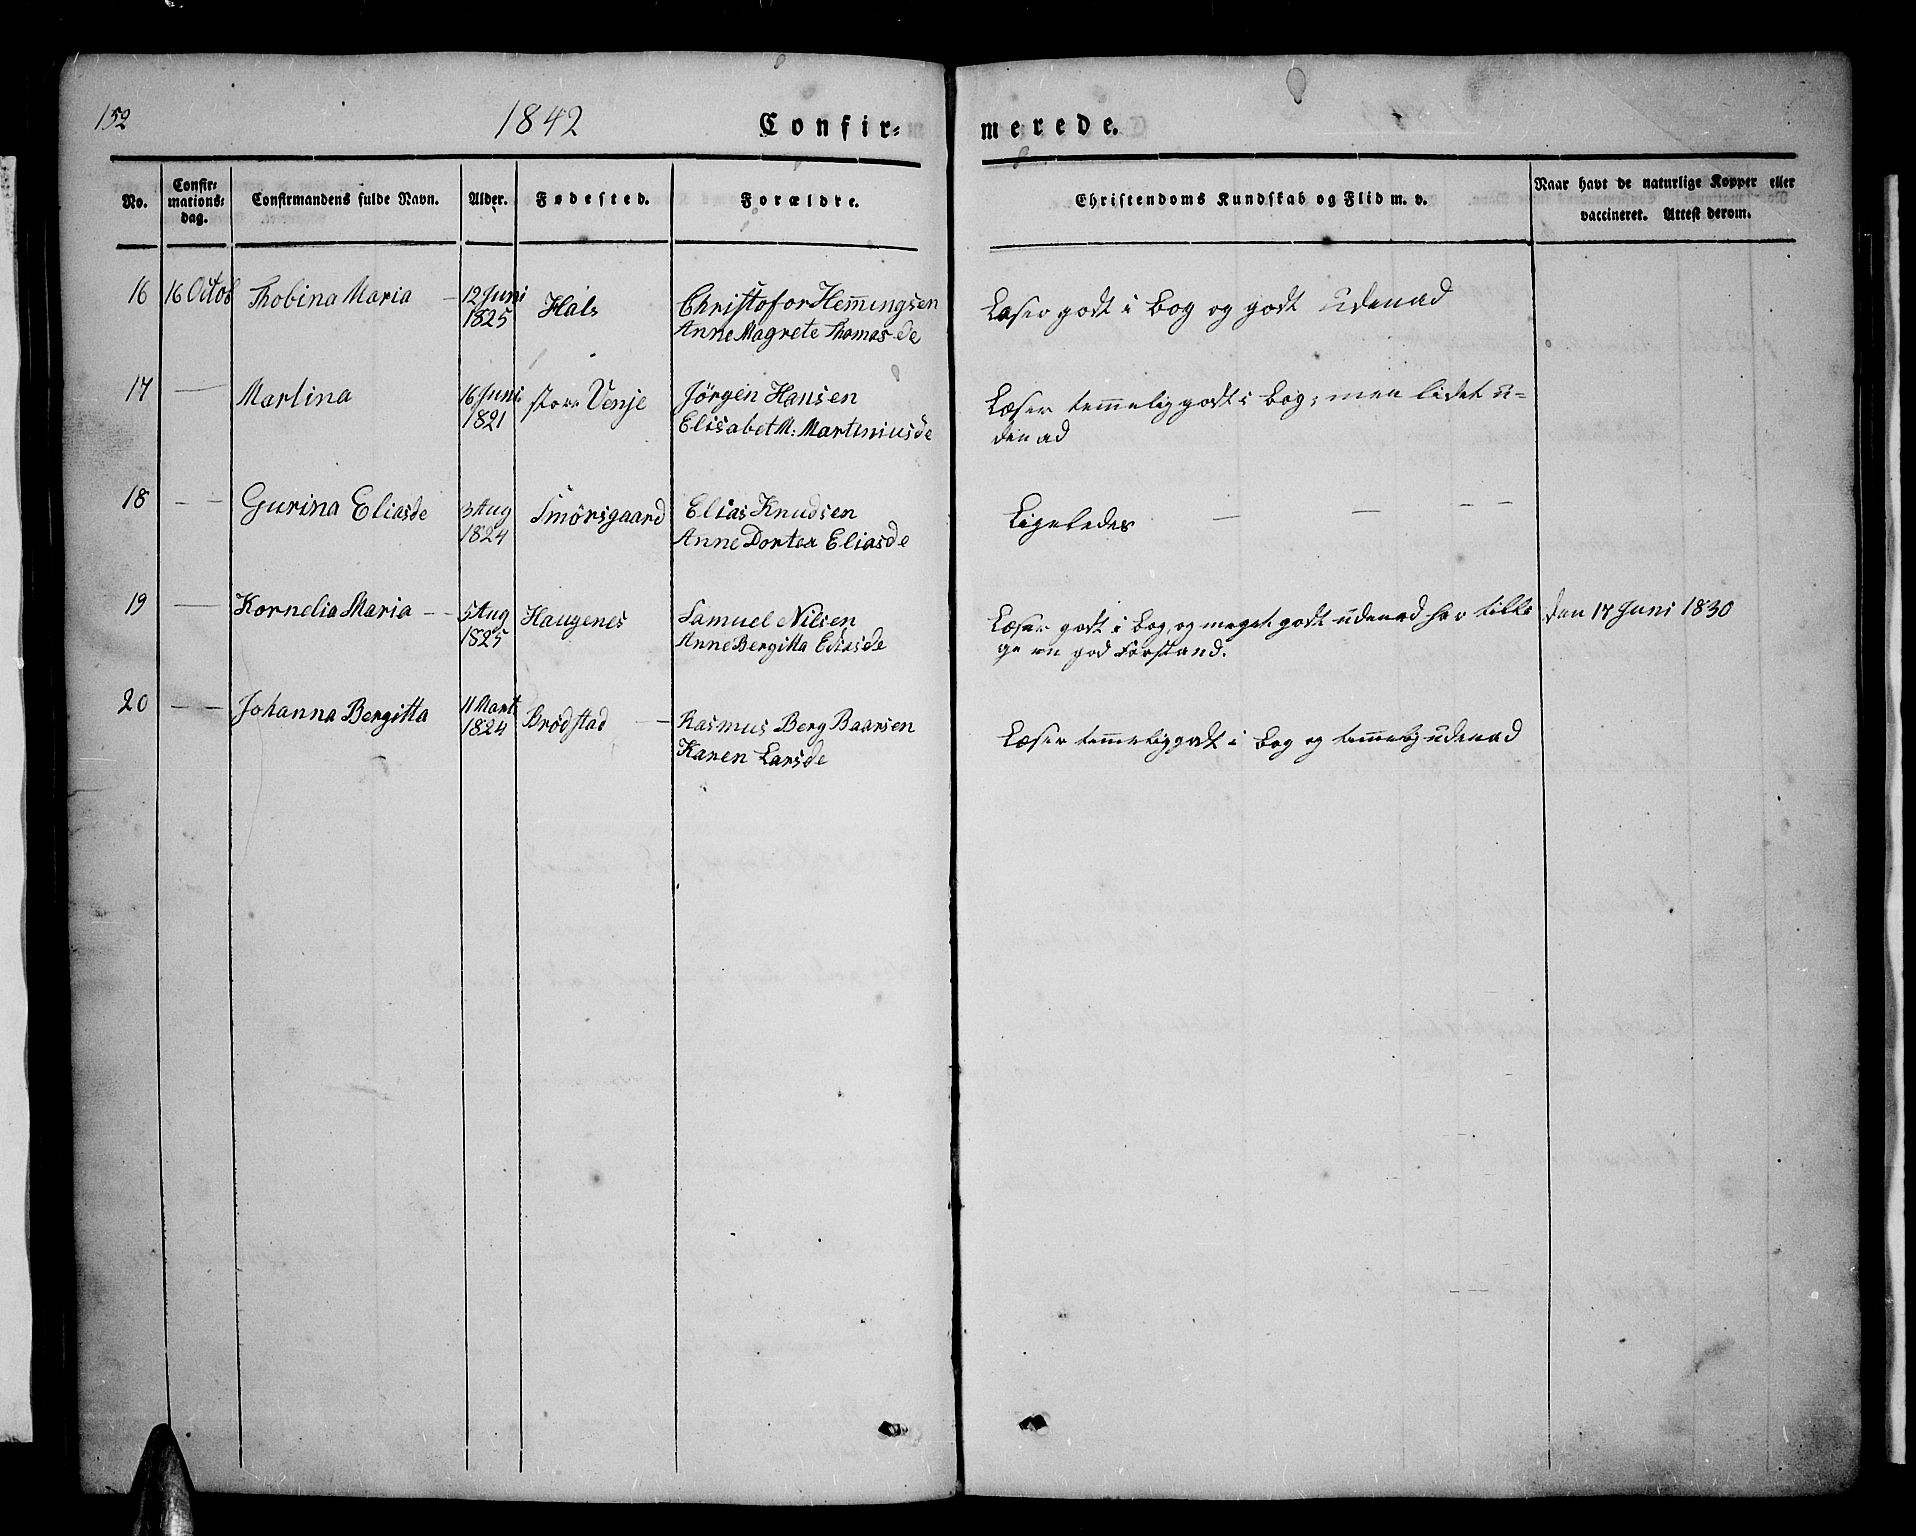 152
1842
Confir=
merede.
No.
Confir=
mations=
dag.
Confirmandens fulde Navn.
Alder.
Fødested.
Forældre.
Christendoms Kundskab og Flid m. v.
Naar havt de naturlige Kopper eller
vaccineret. Attest derom.
16 16 Octob Thobina Maria — 12 Juni Hals Christofor Hem̄ingsen Læser godt i Bog og godt udenad
1825 Anne Magrete Thomasde
17 — Martina 16 Juni store Venje Jörgen Hansen Læser tem̄elig godt i Bog, men lidet u=
1821 Elisabet M: Martiniusde denad
18 — — Gurina Eliasde 3 Aug Smörsgaard Elias Knudsen Ligeledes — — — —
1824 Anne Dortea Eliasde
19 — Kornelia Maria — — 5 Aug Haugenes Samuel Nilsen Læser godt i Bog, og meget godt udenad har tilli den 17 Juni 1830
1825 Anne Bergitta Ediasde ge en god Forstand.
20 — — Johanna Bergitta 11 Mart Brödstad — Rasmus Berg Baarsen Læser tem̄elig godt i Bog og tem̄elig udenad
1824 Karen Larsde